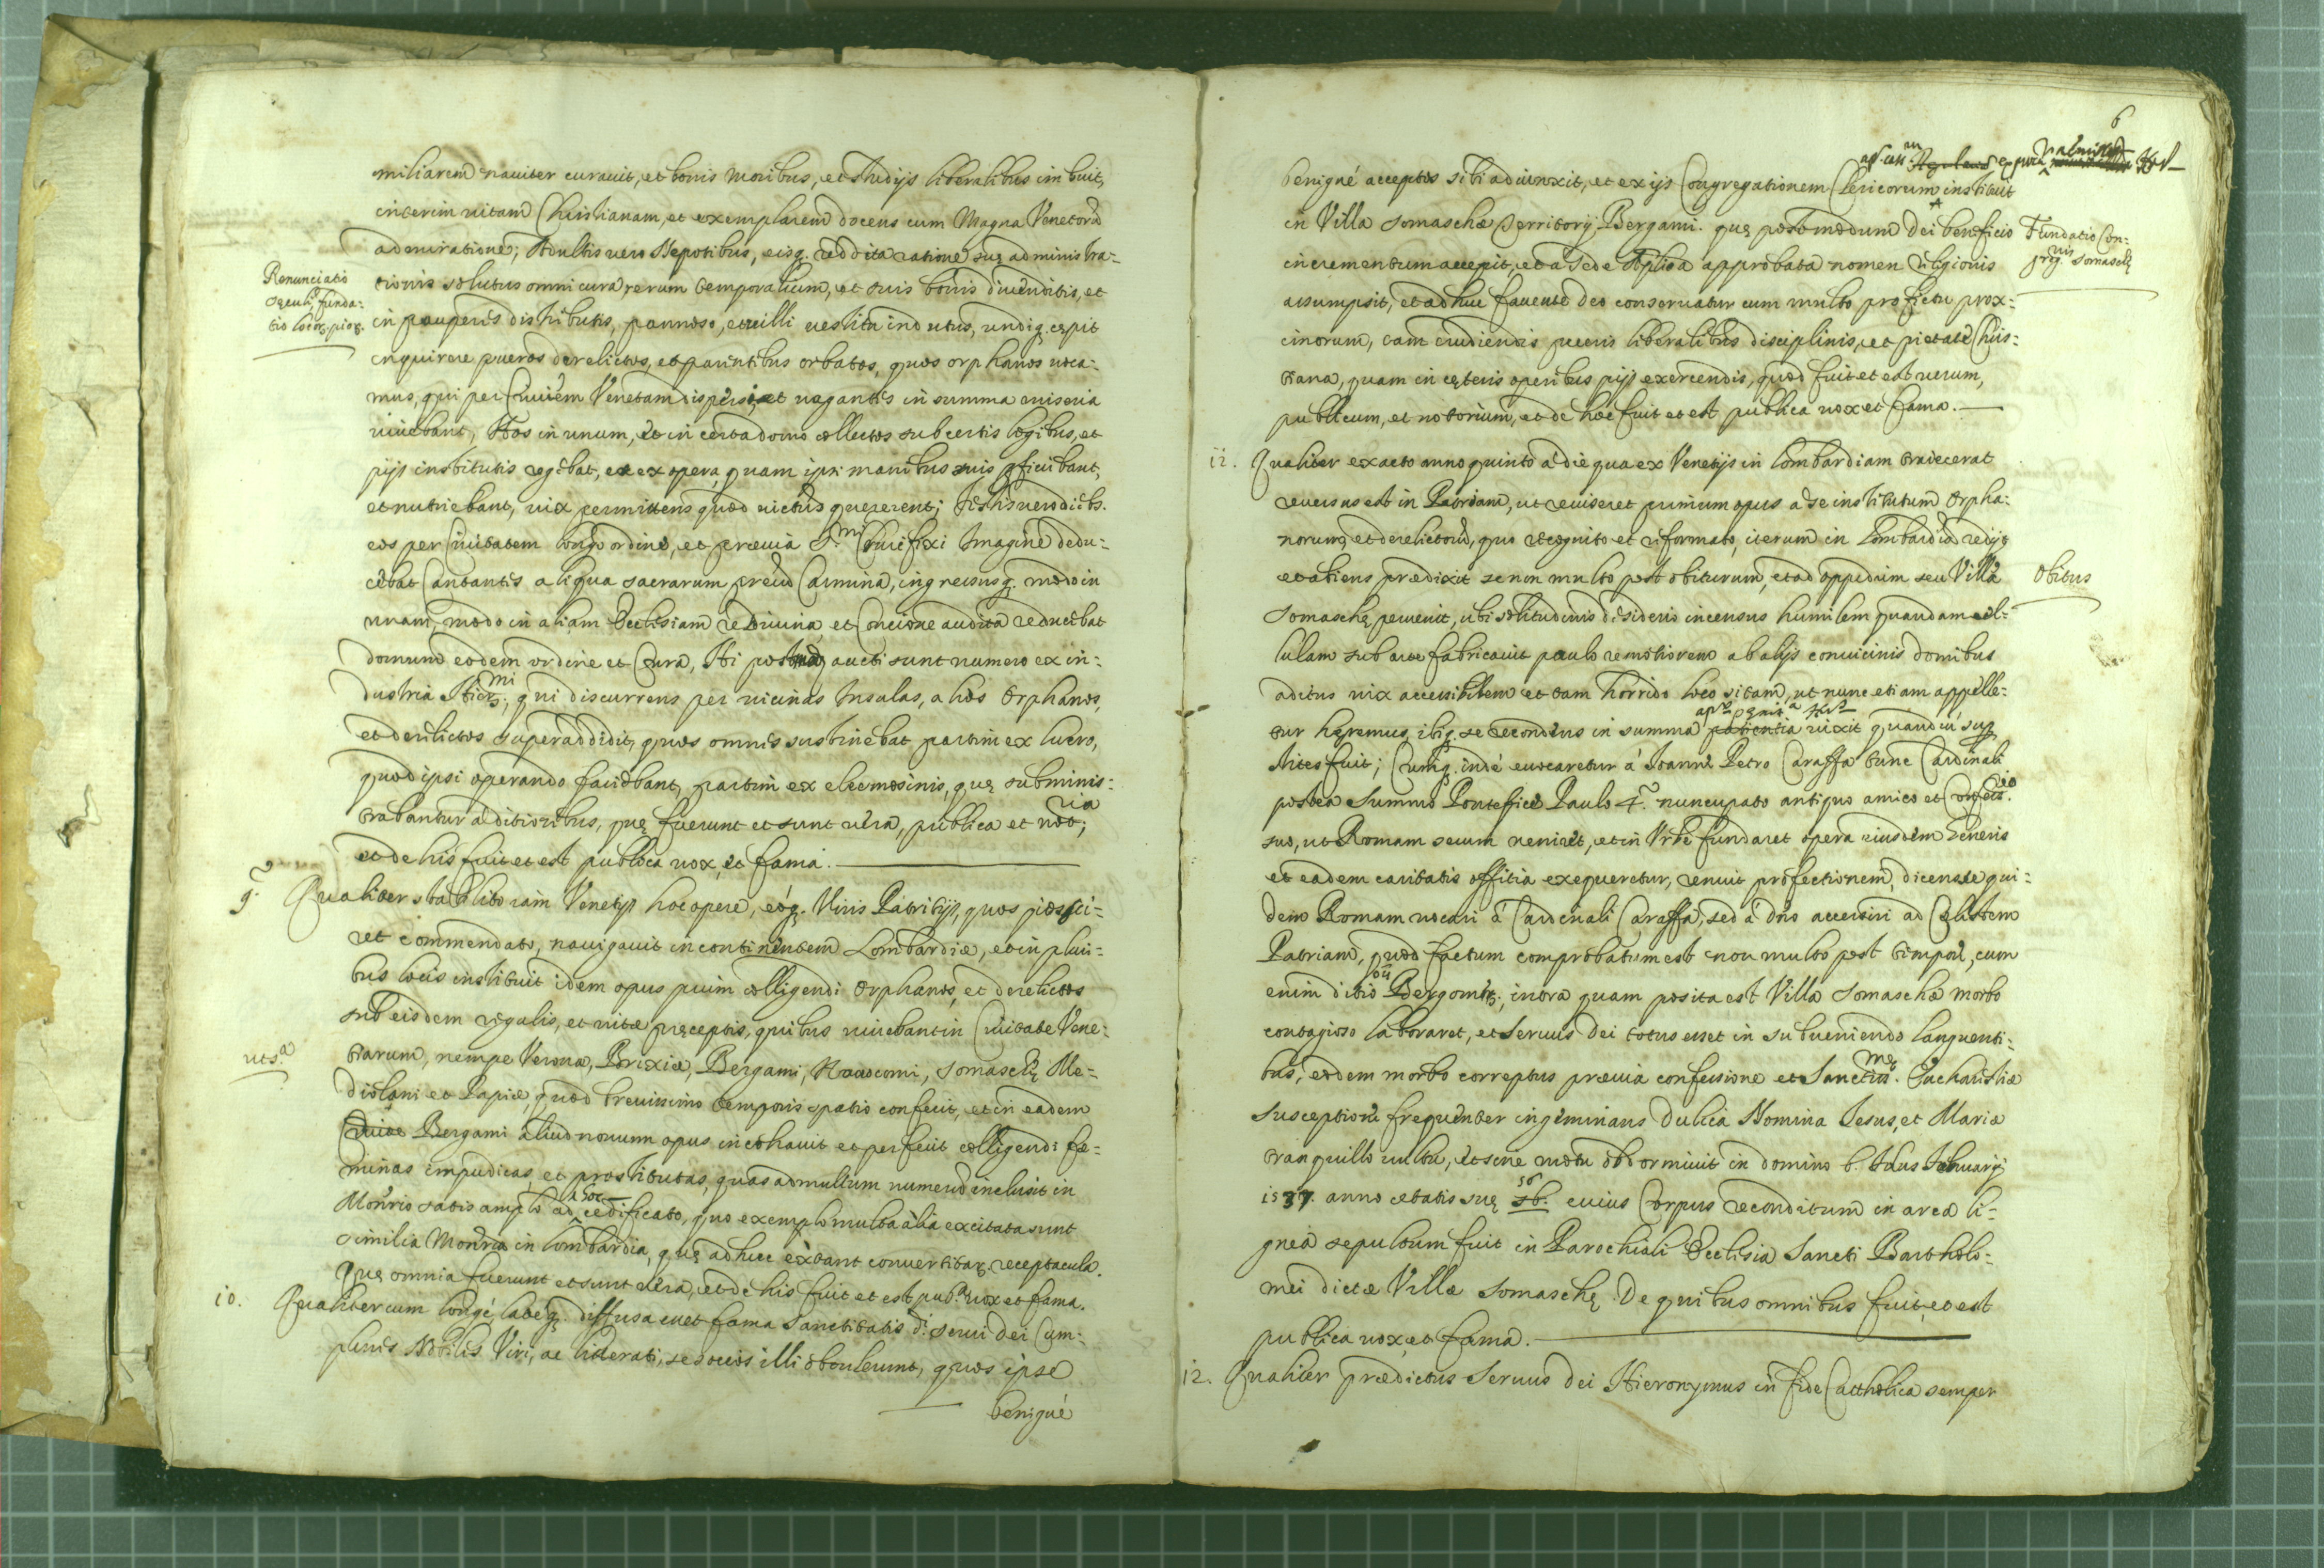 miliarem naviter curavit, et bonis moribus, et studijs liberalibus imbuit,
interim vitam Christianam, et exemplarem docens cum Magna Venetorũ
admiratione; Adultis vero Nepotibus, eisq. reddita ratione suę adminis tra-
Renunciatio
sęculi, funda-
tio locor. pior.
tionis solutus omni cura rerum temporalium, et suis bonis divenditis, et
in pauperes distributis, pannoso, et vili vestitu indutus, undiq. cępit
inquirere pueros derelictos, et parentibus orbatos, quos orphanos voca-
mus, qui per Civitem Venetam dispersi, et vagantes in summa miseria
vivebant, Hos in unum, et in certa domo collectos sub certis legibus, et
pijs institutis regebat, et ex opera, quam ipsi manibus suis pficiebant,
et nutriebant, vix permittens quod victus quererent; Festis vero diebs.
eos per Civitatem longo ordine, et prævia S.mi Crucifixi Imagine dedu-
cebat Cantantes aliqua sacrarum precũ Carmina, ingressusq. modo in
unam, modo in aliam Ecclesiam re Divina, et Concione audita reducebat
domum eodem ordine et Cura, Hi postmodũ aucti sunt numero ex in-
dustria Hier.mi, qui discurrens per vicinas Insulas, alios Orphanos,
et derelictos superaddidit, quos omnes sustinebat partim ex lucro,
quod ipsi operando faciebant, partim ex eleemosinis, quę subminis-
trabantur a ditioribus, quę fuerunt et sunt vera, publica et notoria;
et de his fuit et est publica vox, et fama.
9. Qualiter stabilito iam Venetijs hoc opere, eoq. Viris Patritijs, quos pios sci-
ret commendato, navigavit in continentem Lombardiæ, et in pluri-
bus locis instituit idem opus puim colligendi Orphanos, et derelictos
sub eisdem regulis, et vitæ pręceptis, quibus vivebant in Civitate Vene-
uts.a
tiarum, nempe Verona, Brixiæ, Bergami, Novocomi, Somaschę Me-
diolani et Papiæ, quod brevissimo temporis spatio confecit, et in eadem
Civite Bergami aliud novum opus incohavit et perfecit colligendi fæ-
minas impudicas, et prostitutas, quas ad multum numerũ inclusit in
Monrio satis amplo ad hoc ædificato, quo exemplo multa alia excitata sunt
similia Monria in Lombardia, quę adhuc extant convertitar. receptacula.
Quę omnia fuerunt et sunt vera, et de his fuit et est pub.a vox et fama.
10. Qualiter cum longé, lateq. diffusa esset fama Sanctitatis d. servi Dei Com-
plures Nobiles Viri, ac litterati, se socios illi obtulerunt, quos ipse
benigné
6
benigné acceptos sibi adiunxit, et ex ijs Congregationem Clericorum instituit
in Villa Somaschæ Territorij Bergami. quę postmodum Dei beneficio
Fundatio Con-
greg.nis Somaschę
incrementum accepit, et a Sede Aplica approbata nomen religionis
assumpsit, et adhuc favente Deo conservatur cum multo profectu prox-
imorum, tam erudiendis pueris liberalibus disciplinis, et pietate Chris-
tiana, quam in cęteris operibus pijs exercendis, quod fuit et est verum,
publicum, et notorium, et de hoc fuit et est publica vox et fama.
11. Qualiter exacto anno quinto a die qua ex Venetijs in Lombardiam traiecerat
reversus est in Patriam, ut reviseret primum opus a se institutum Orpha-
norum, et derelictorũ, quo recognito et reformato, iterum in Lombardiã redijt
et abiens prædixit se non multo post obiturum, et ad oppidum seu Villã
Obitus
Somaschę pervenit, ubi solitudinis desiderio incensus humilem quandam cel-
lulam sub arce fabricavit paulo remotiorem ab alijs convicinis domibus
aditus vix accessibilem et tam horrido loco sitam, ut nunc etiam appelle-
tur hęremus, ibiq. se recondens in summa patientia vixit quandiu sup
stites fuit; Cumq. indé evocaretur á Ioanne Petro Caraffa tunc Cardinali
postea Summo Pontefice Paulo 4.to nuncupato antiquo amico et Confess.io
suo, ut Romam secum veniret, et in Urbe fundaret opera eiusdem Generis
et eadem caritatis offitia exequeretur, renuit profectionem, dicens se qui-
dem Romam vocari á Cardinali Caraffa, sed á Dno accersiri ad Cęlestem
Patriam, quod factum comprobatum est non multo post tempore, cum
enim ditio Bergom, intra quam posita est Villa Somascha morbo
contagioso laboraret, et Servus Dei totus esset in subveniendo languenti-
bus, eodem morbo correptus prævia confessione et Sanctiss.mę Eucharistiæ
susceptione frequenter ingeminans dulcia Nomina Iesus, et Mariæ
tranquillo vultu, et sine motu obdormivit in domino 6. Idus Februarij
1537 anno ætatis suę 56 cuius Corpus reconditum in arca li-
gnea sepultum fuit in Parochiali Ecclesia Sancti Bartholo-
mei dictæ Villæ Somaschę. De quibus omnibus fuit, et est
publica vox, et fama.
12. Qualiter prædictus Servus Dei Hieronymus in fide Catholica semper